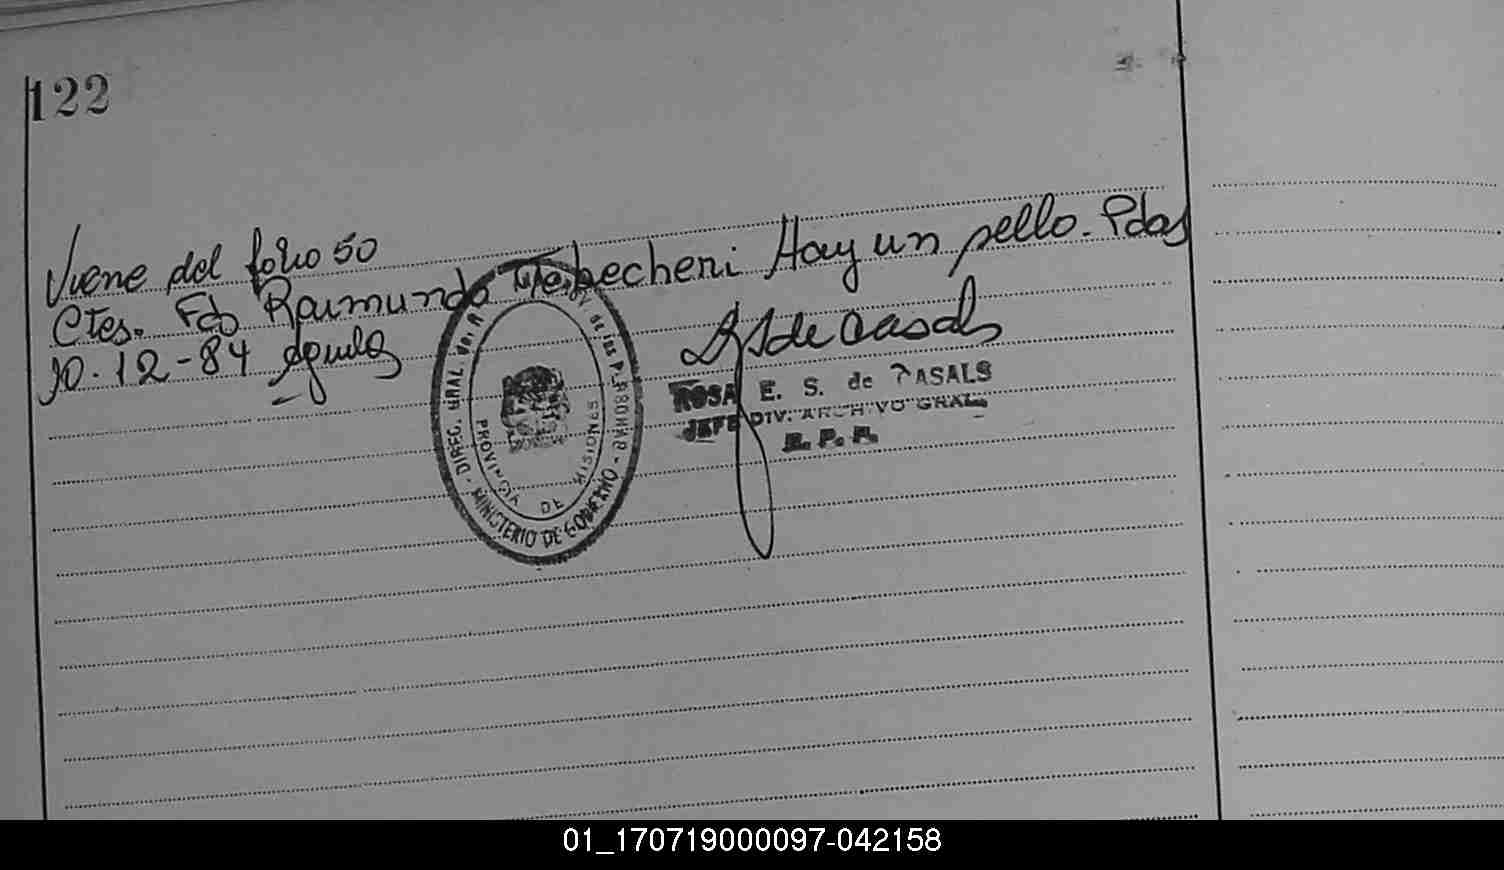 122
Viene del folio 50
Ctes. Fdo Raimundo hay un sello. Pdas
10-12-84
DIREC. GRAL. del R. de las PERSONAS - MINISTERIO DE GOBIERNO -
PROVINCIA DE MISIONES
ROSA E. S. de CASALS
JEFE DIV. ARCHIVO GRAL.
R. P. P.
01_170719000097-042158